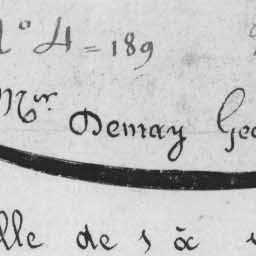 N° 4 = 189
Mr Demay Geo
lle de s à